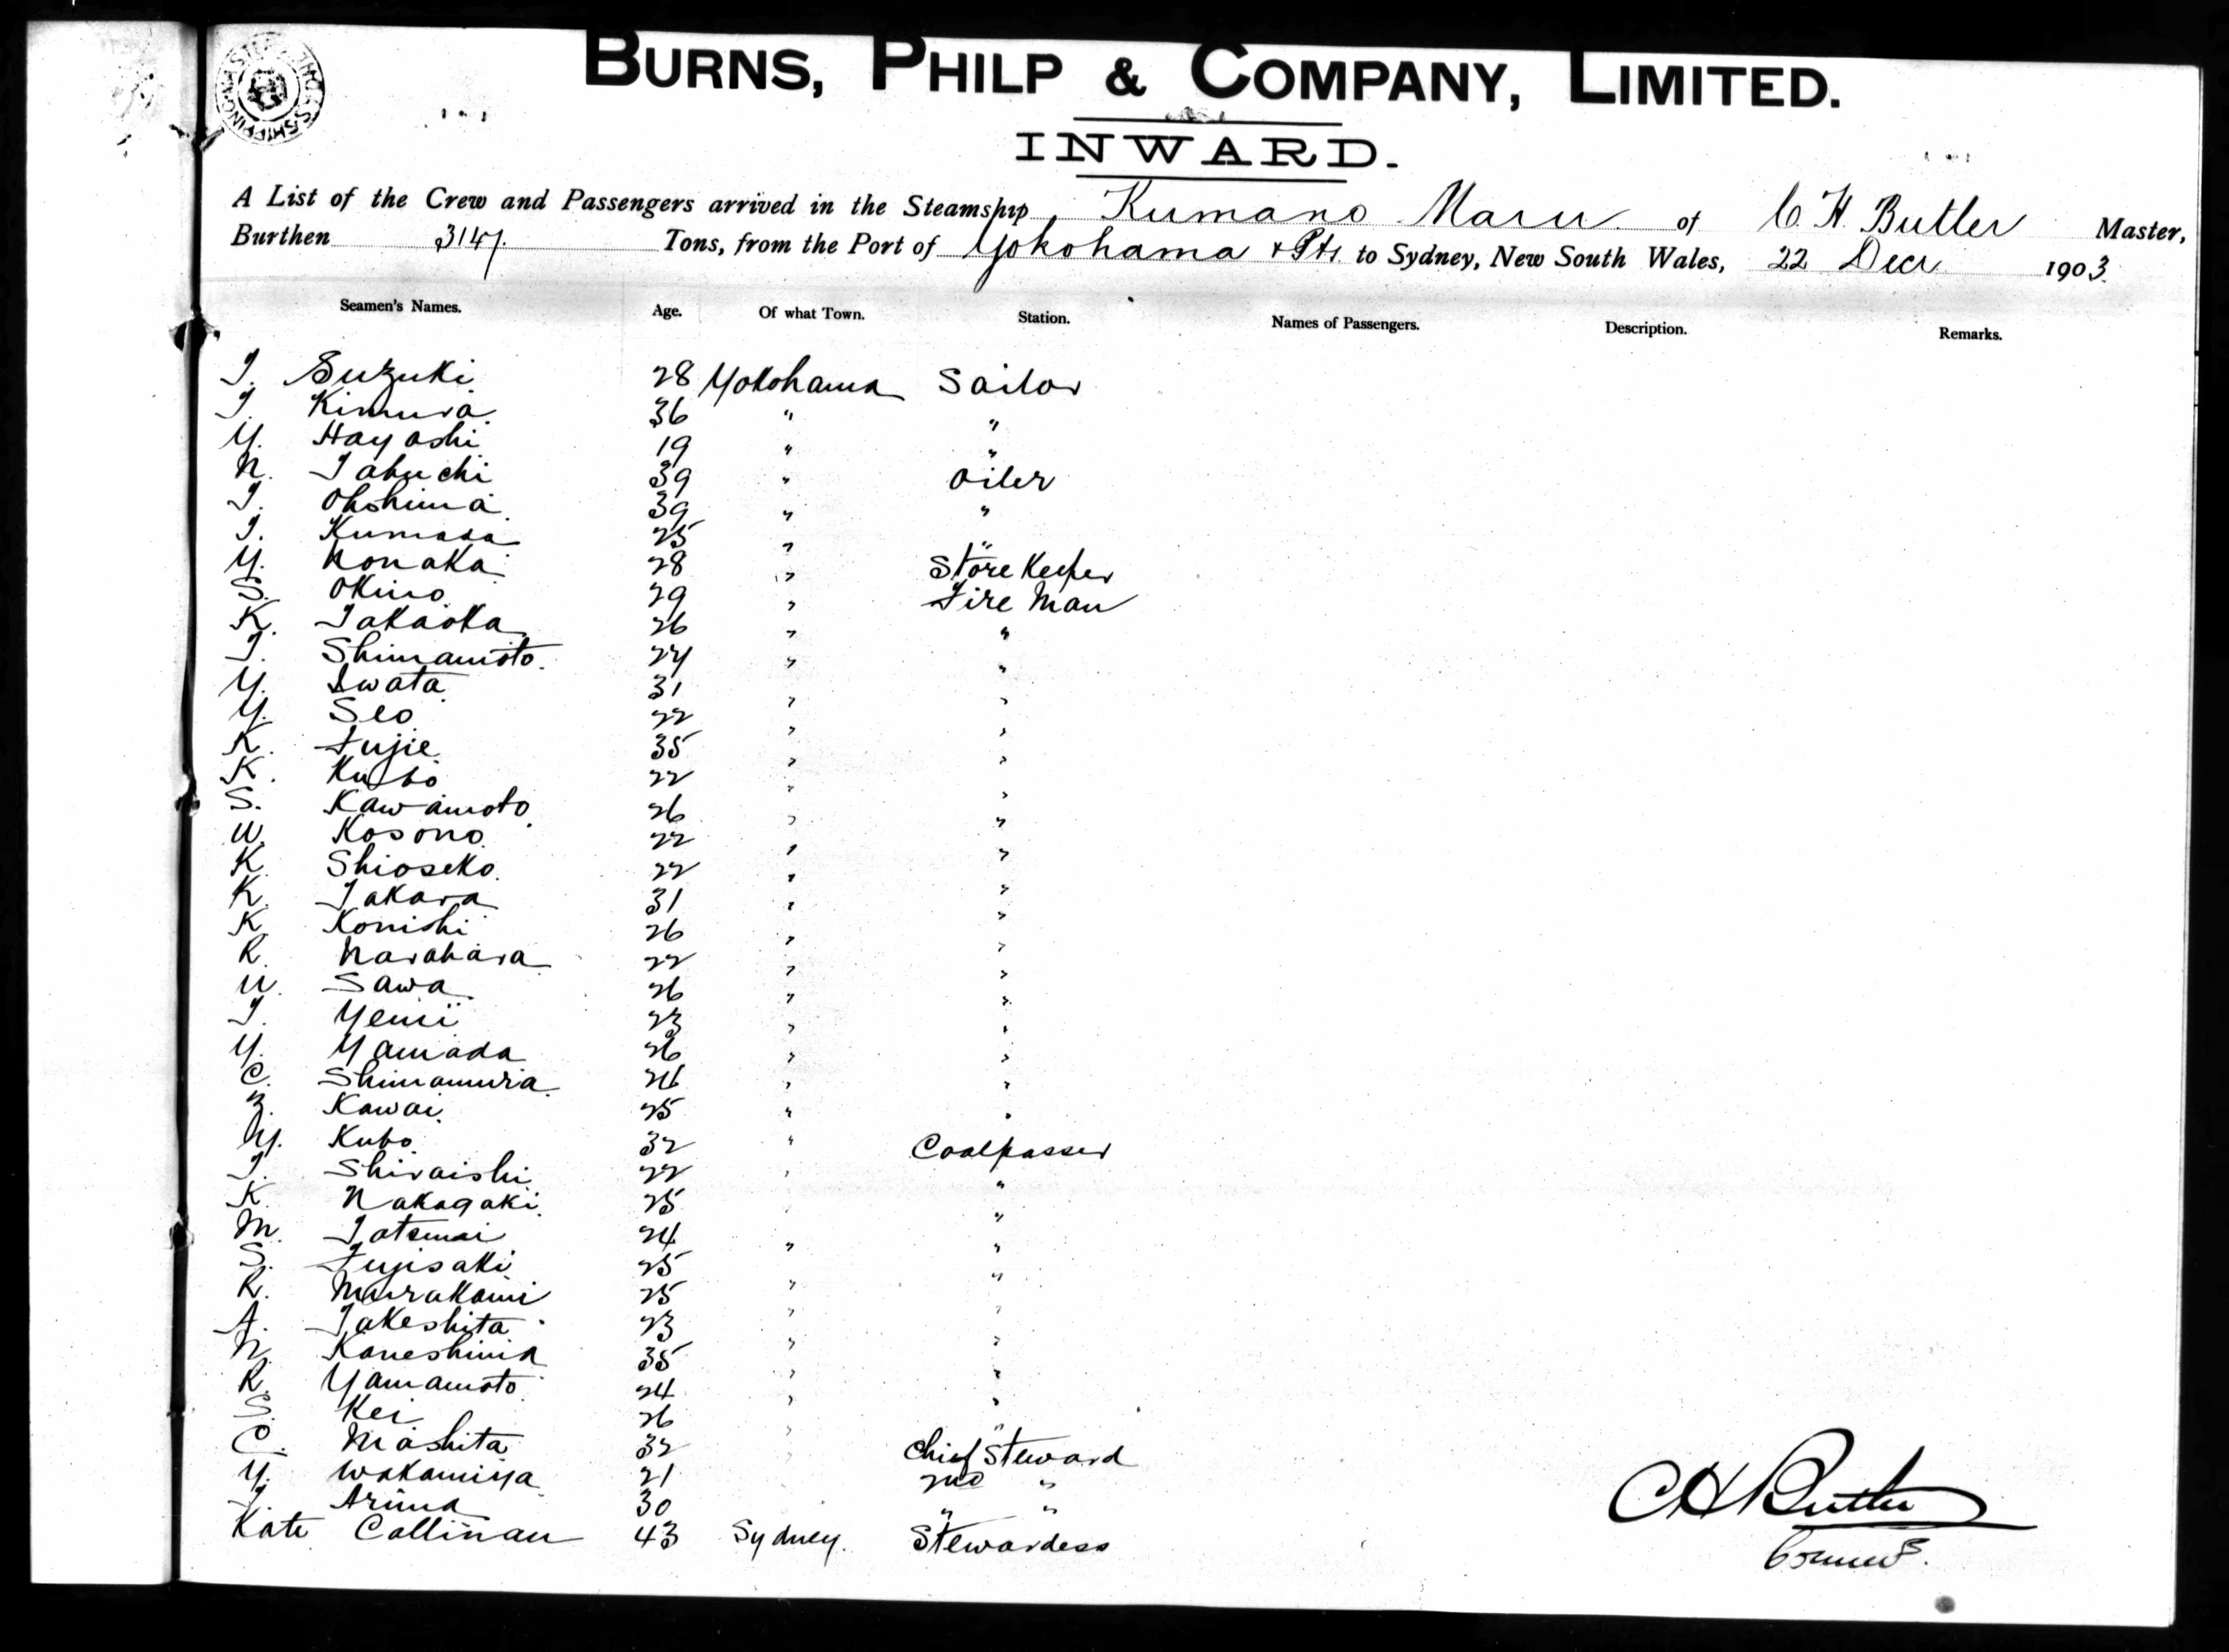 BURNS, PHILP & COMPANY, LIMITED.
INWARD.
A List of the Crew and Passengers arrived in the Steamship Kumano Maru of C. H. Butler Master,
Burthen 3147. Tons, from the Port of Yokohama + Pts. to Sydney, New South Wales, 22 Decr 1903.
Seamen's Names. Age. Of what Town. Station. Names of Passengers. Description. Remarks.
T. Suzuki 28 Yokohama Sailor
T. Kimura 36 " "
Y. Hayashi 19 " "
N. Tabuchi 39 " Oiler
T. Ohshima 39 " "
T. Kumasa 25 " "
Y. Nonaka 28 " Store Keeper
S. Okino 29 " Fire Man
K. Takaoka 26 " "
T. Shimamoto. 24 " "
Y. Iwata 31 " "
Y. Seo 22 " "
K. Fujie 35 " "
K. Kubo 22 " "
S. Kawamoto 26 " "
U. Kosono 22 " "
K. Shioseko. 22 " "
K. Takara 31 " "
K. Konishi 26 " "
R. Narahara 22 " "
U. Sawa 26 " "
T. Yenii 23 " "
Y. Yamada 26 " "
C. Shimamura 24 " "
Z. Kawai 25 " "
Y. Kubo 32 " Coalpasser
T. Shiraishi 22 " "
K. Nakagaki 25 " "
M. Tatsumi 24 " "
S. Fujisaki 25 " "
R. Murakami 25 " "
A. Takeshita 23 " "
N. Kaneshima 35 " "
R. Yamamoto 24 " "
S. Kei 26 " "
C. Mashita 32 " Chief Steward
Y. Wakamiya 21 2nd "
T. Arima 30 " "
Kate Callinan 43 Sydney. Stewardess
C H Butler